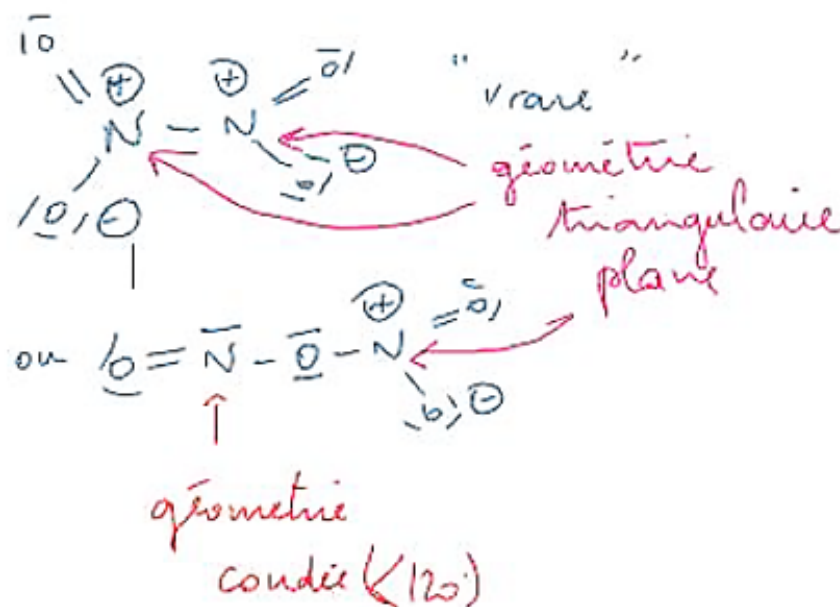 |O̅ ⊕ ⊕ O̅| "vraie"
N - N
|O| ⊖ |O| ⊖ géométrie
triangulaire
plane
ou O = N̅ - O̅ - N ⊕ = O̅|
|O| ⊖
géométrie
coudée (<120°)